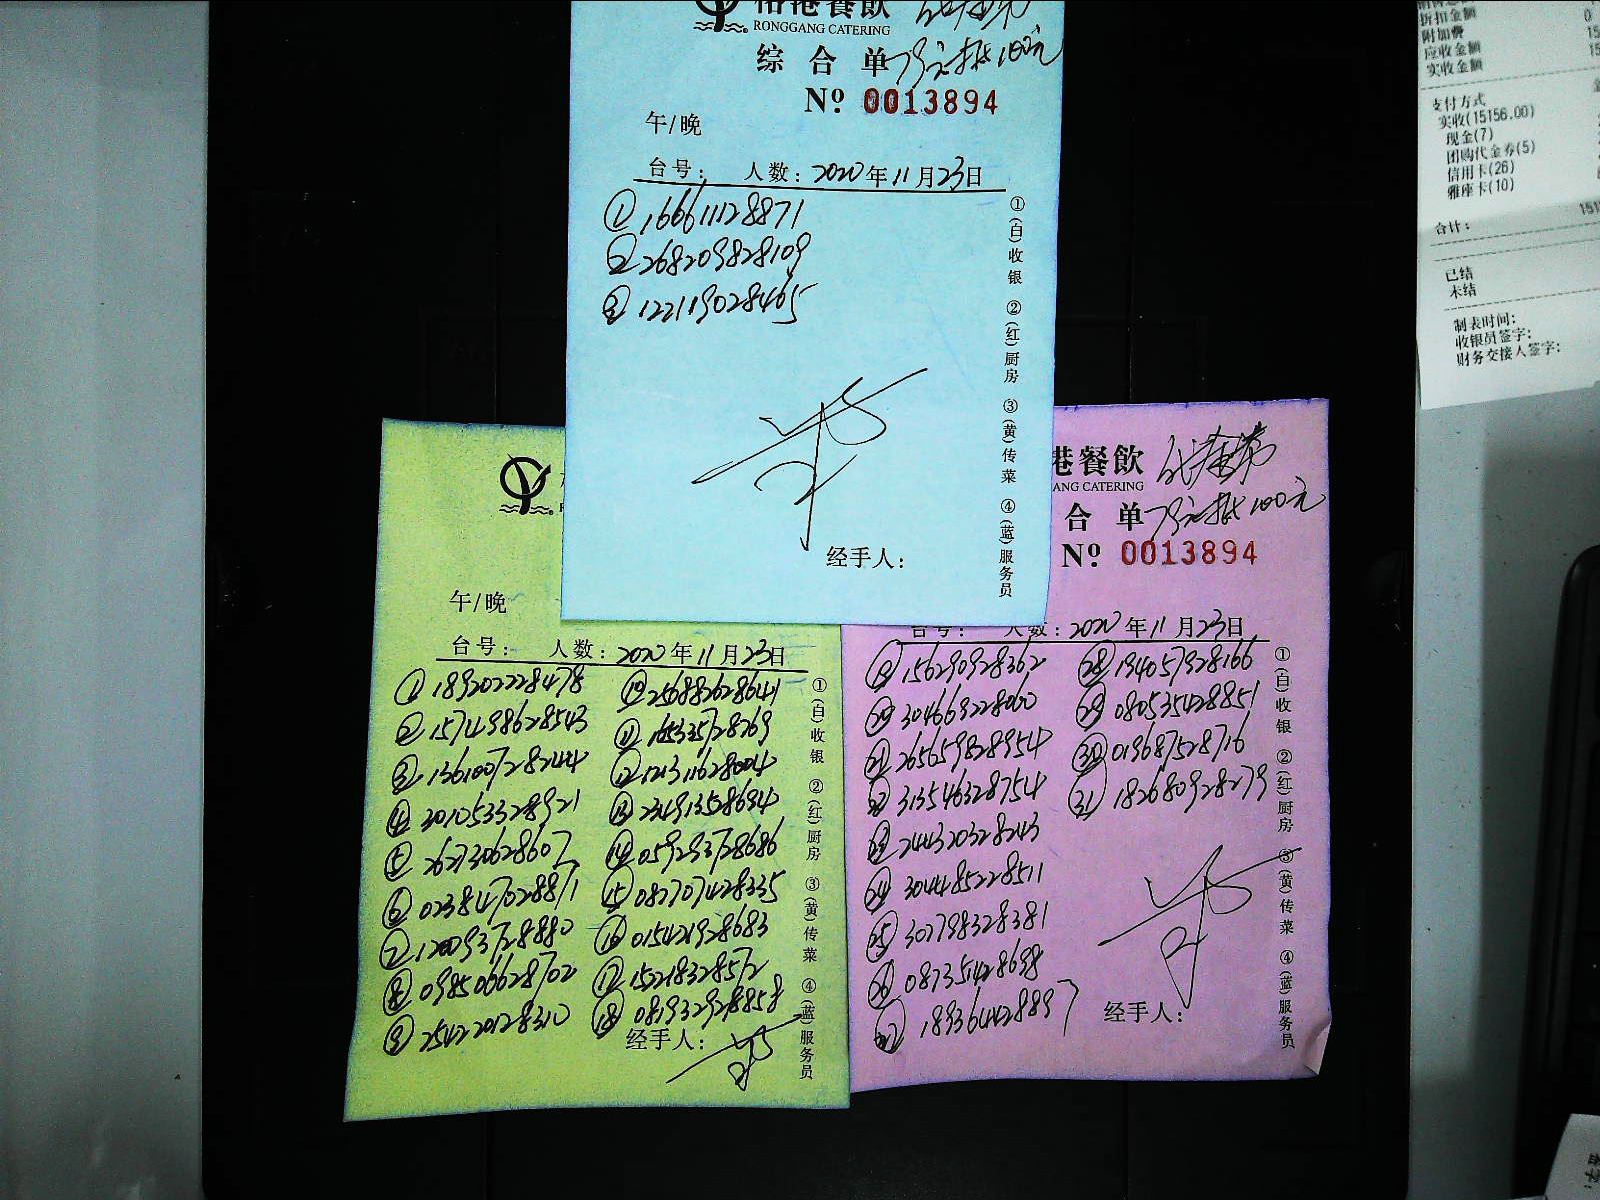 裕港餐飲
RONGGANG CATERING
综合单 79元抵100元
Nº 0013894
午/晚
台号: 人数: 2020年11月23日
① 166611128871
② 268209828109
③ 122119028465
经手人:
①(白)收银 ②(红)厨房 ③(黄)传菜 ④(蓝)服务员
午/晚
台号: 人数: 2020年11月23日
① 189202228478
② 157498628543
③ 136100728244
④ 301053328921
⑤ 262730628607
⑥ 023847028871
⑦ 120093728880
⑧ 098506628702
⑨ 254220128310
⑩ 256882628641
⑪ 165335728269
⑫ 121311628004
⑬ 234913528684
⑭ 059293728686
⑮ 082707428335
⑯ 015421928683
⑰ 152218328572
⑱ 081932928858
经手人:
①(白)收银 ②(红)厨房 ③(黄)传菜 ④(蓝)服务员
港餐飲 代金券
ANG CATERING
合单 79元抵100元
Nº 0013894
台号: 人数: 2020年11月23日
⑲ 156290928362
⑳ 304669228060
㉑ 265659828954
㉒ 313546328754
㉓ 244320328243
㉔ 304485228511
㉕ 302798328381
㉖ 087351428698
㉗ 189364428897
㉘ 194057928166
㉙ 080535428851
㉚ 019687528716
㉛ 182680928279
经手人:
①(白)收银 ②(红)厨房 ③(黄)传菜 ④(蓝)服务员
折扣金额 0
附加费 15
应收金额 15
实收金额
支付方式
实收(15156.00)
现金(7)
团购代金券(5)
信用卡(26)
雅座卡(10)
合计: 151
已结
未结
制表时间:
收银员签字:
财务交接人签字: